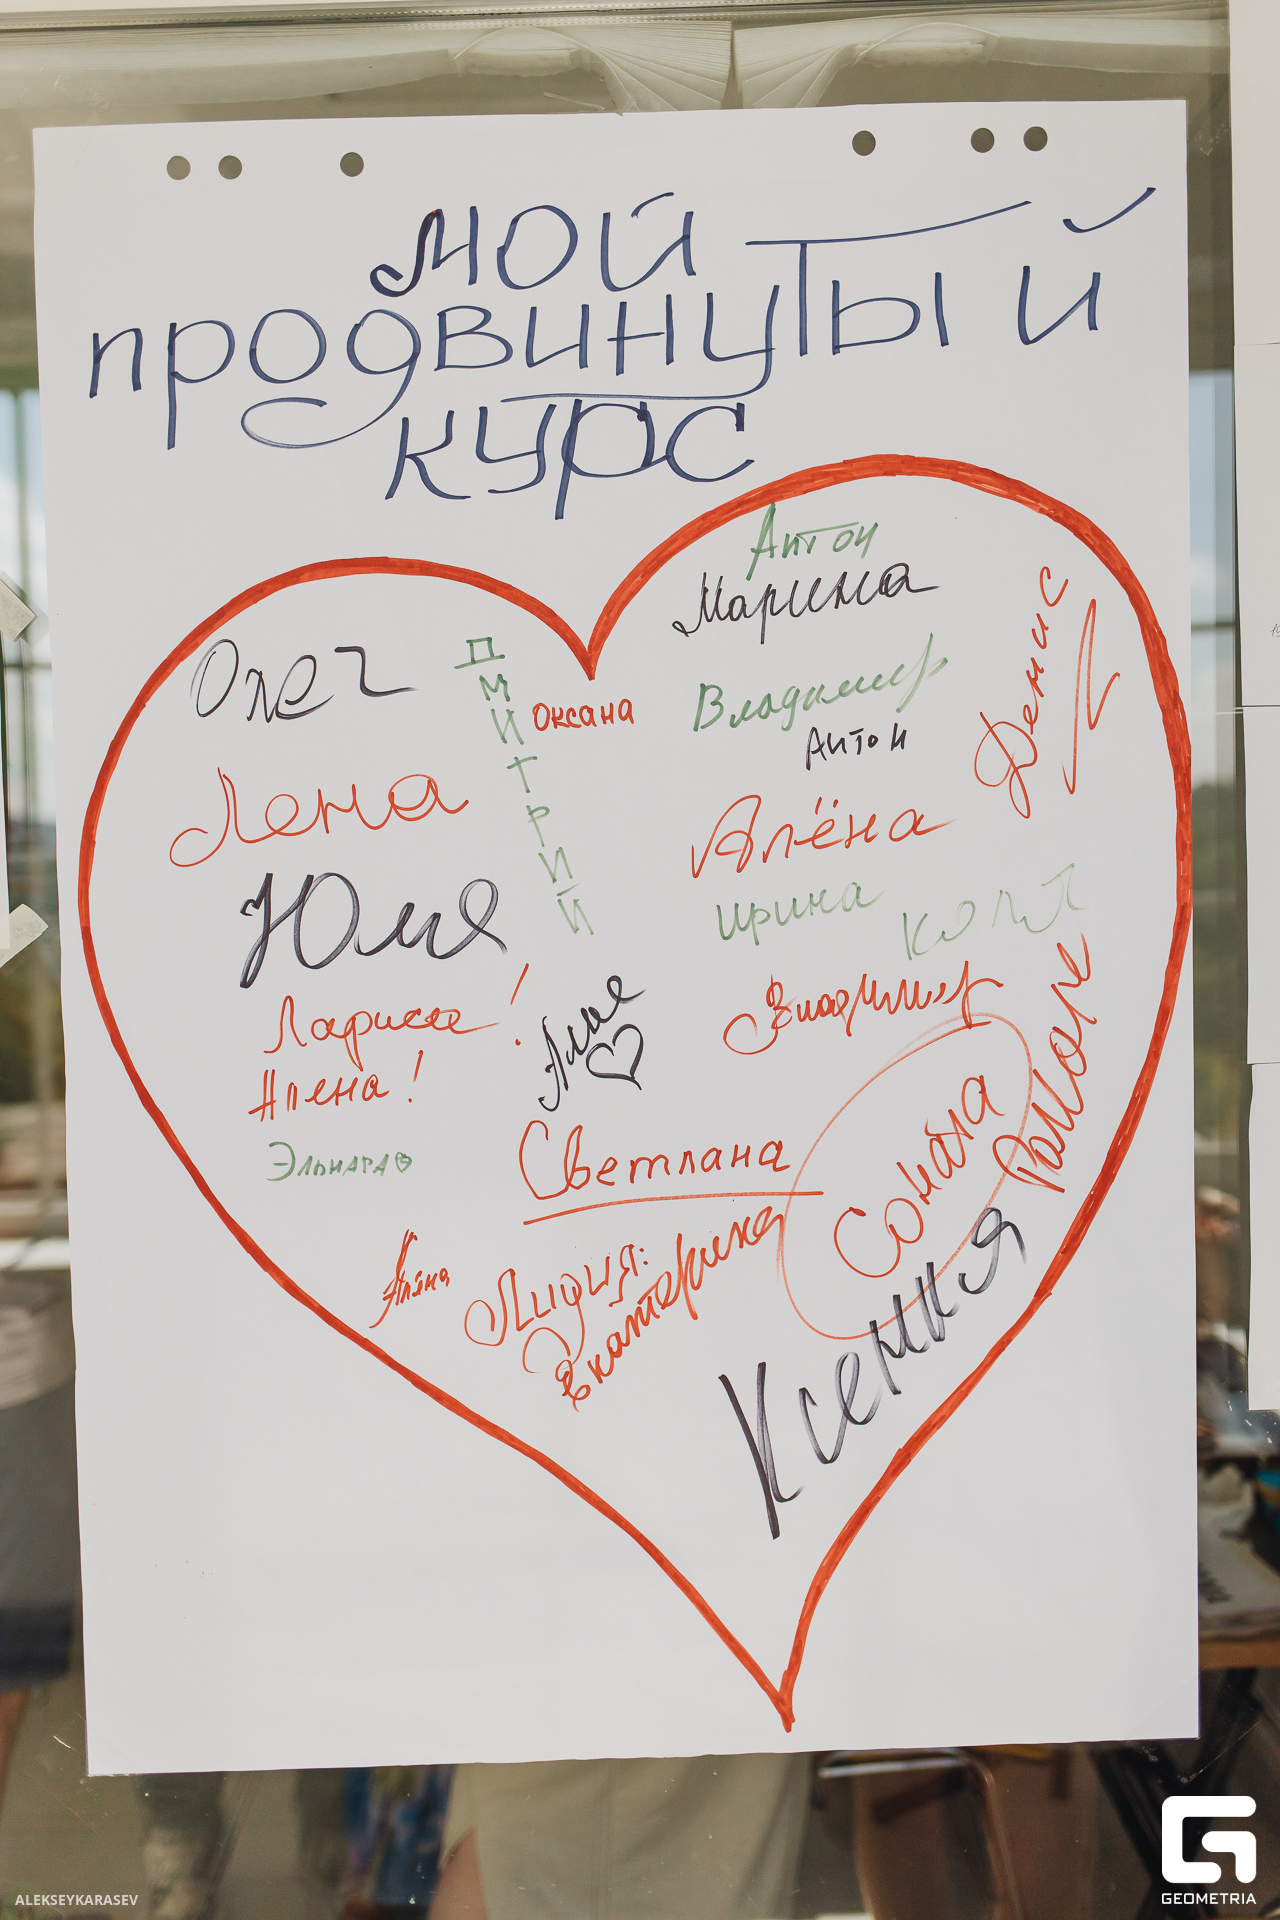 мой
продвинутый
курс
Антон
Марина
Олег
Дмитрий
Оксана
Владимир
Антон
Денис
Лена
Алёна
Юля
Ирина
Коля
Лариса!
Владимир
Алёна!
Эльмира
Светлана
Алёна
Лидия
Екатерина
Ксения
ALEKSEYKARASEV
GEOMETRIA